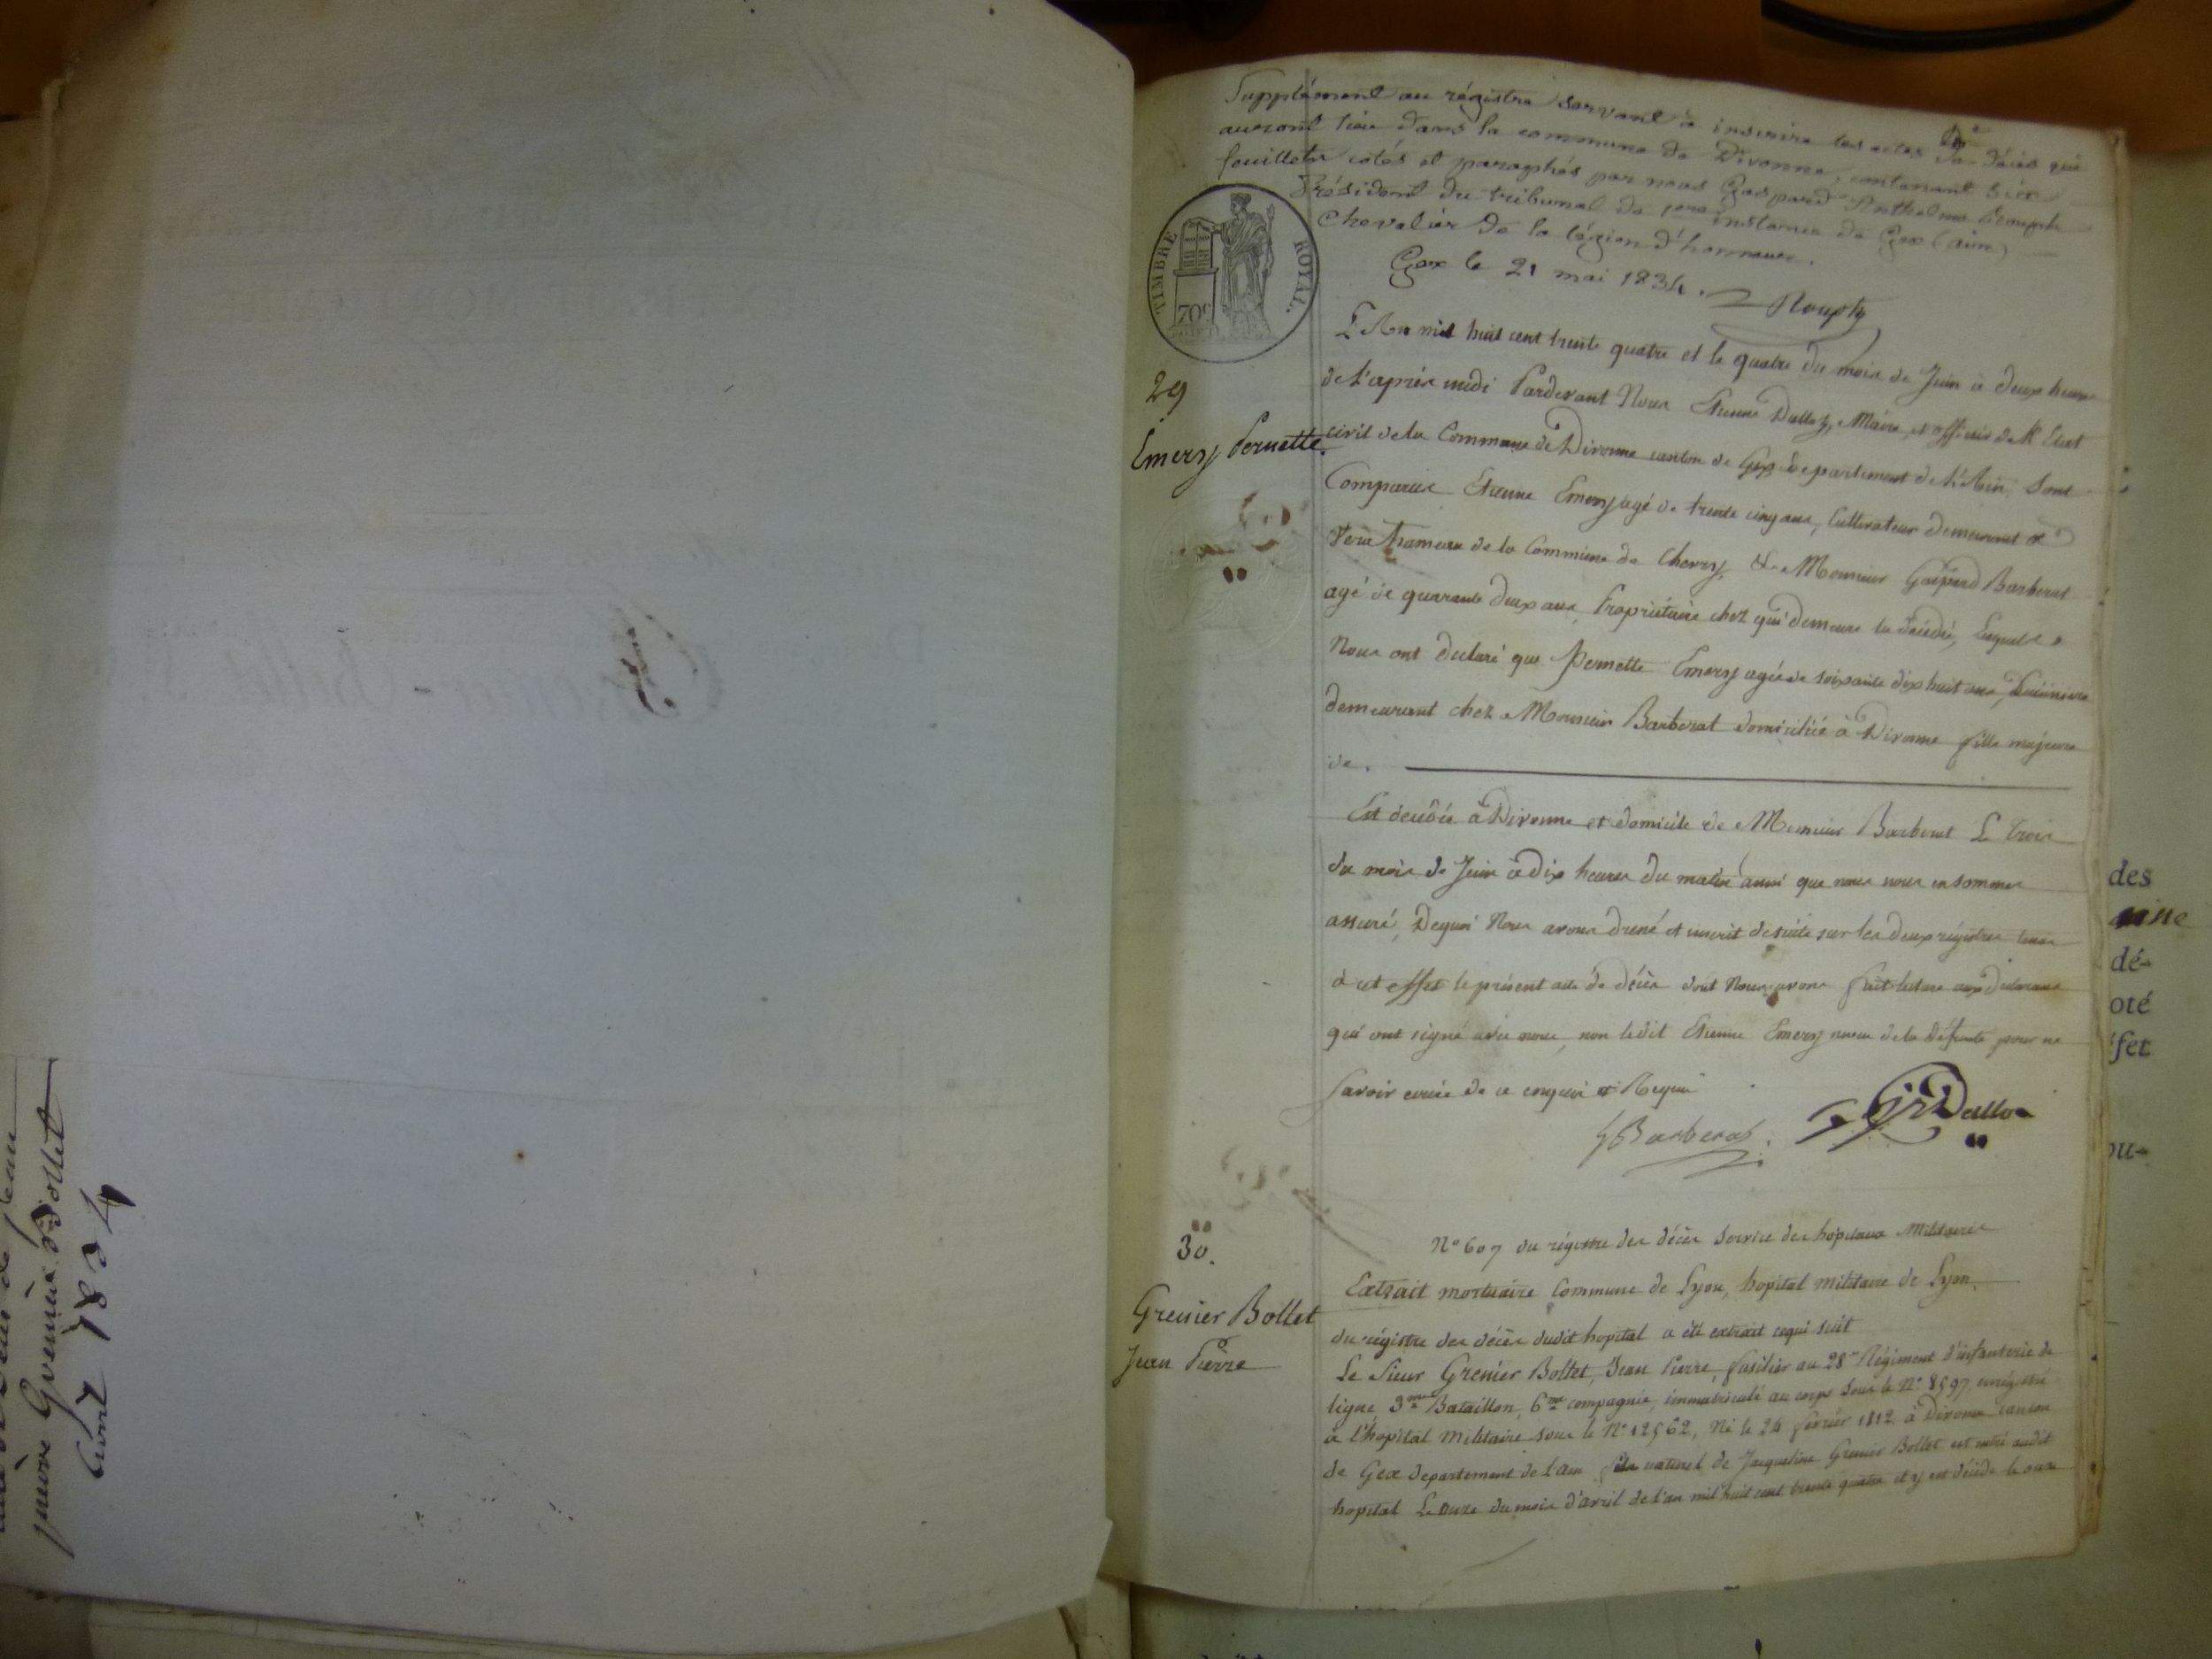 Supplément au régistre servant à inscrire les actes de décès qui
auront lieu dans la commune de Divonne, contenant six
feuillets cotés et paraphés par nous Gaspard Anthelme
Président du tribunal de pre instance de Gex (ain)
Chevalier de la légion d'honneur.
Gex le 21 mai 1834.
TIMBRE ROYAL
70c
29
Emery Pernette.
L'An mil huit cent trente quatre et le quatre du mois de Juin à deux heures
de l'après midi Pardevant Nous Etienne Dalloz, Maire, et officier de l'Etat
civil de la Commune de Divonne canton de Gex département de l'Ain, Sont
Comparus Etienne Emery agé de trente cinq ans, Cultivateur demeurant à
hameau de la Commune de Chevry, & Monsieur Gaspard Barberat
agé de quarante deux ans, Propriétaire chez qui demeure la décédée, Lesquels
Nous ont déclaré que Pernette Emery agée de soixante dix huit ans, Cuisiniere
demeurant chez Monsieur Barberat domiciliée à Divonne fille majeure
de.
Est décédée à Divonne et domicile de Monsieur Barberat Le trois
du mois de Juin à dix heures du matin ainsi que nous nous en sommes
assuré, Dequoi Nous avons dressé et inscrit desuite sur les deux régistres tenus
à cet effet le présent acte de décès dont Nous avons fait lecture aux Déclarans
qui ont signé avec nous, non ledit Etienne Emery neveu de la défunte pour ne
Savoir écrire de ce enquis et Requis
G Barberat. Dalloz
30.
Grenier Bollet
Jean Pierre
N° 607 du régistre des décès Service des hôpitaux Militaires
Extrait mortuaire Commune de Lyon, hopital militaire de Lyon.
du régistre des décès dudit hopital a été extrait cequi suit
Le Sieur Grenier Bollet, Jean Pierre, fusilier au 28me Régiment d'infanterie de
ligne 3me Bataillon, 6me compagnie, immatriculé au corps sous le N° 8597 enrégistré
à l'hopital Militaire sous le N° 12562, Né le 24 février 1812 à Divonne canton
de Gex département de l'ain fils naturel de Jacqueline Grenier Bollet est entré audit
hopital Le onze du mois d'avril de l'an mil huit cent trente quatre et y est décédé le onze
de Jean
pierre Grenier Bollet
avril 1834
des
dé-
oté
fet
ou-